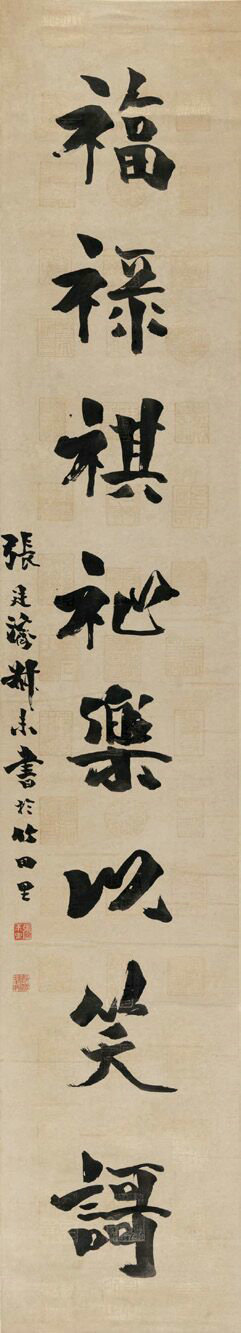 福祿祺祉樂以笑謌
張廷濟叔未書於竹田里